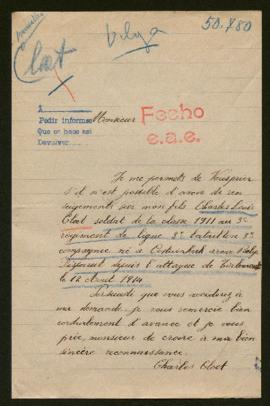 50.780
Belga
Cloet
A
Pedir informes
Que en base asi
Devolver
Monsieur
Fecho
e.a.e.
Je me permets de Vous prier
s'il m'est possible d'avoir de ren
seignements sur mon fils Charles Louis
Cloet soldat de la classe 1911 au 3e
régiment de ligne 3e bataillon 3e
compagnie né à
disparut depuis l'attaque de
le 12 Aout 1914
Persuadé que vous voudrez à
ma demande je vous remercie bien
cordialement d'avance et je vous
prie, monsieur de croire à ma bien
sincère reconnaissance.
Charles Cloet